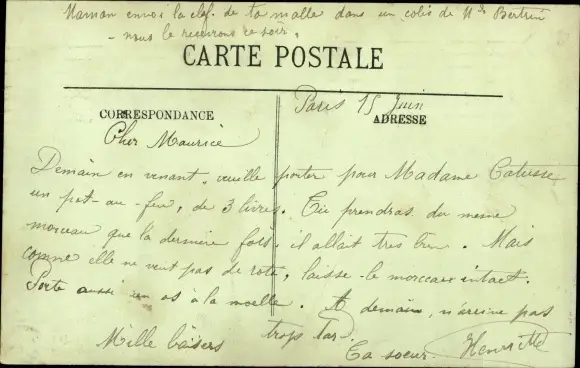 Maman envoi la clef de ta malle dans un colis de Mde Bertrin
- nous le recevrons ce soir.
CARTE POSTALE
Paris 15 Juin
CORRESPONDANCE
ADRESSE
Cher Maurice
Demain en venant, veuille porter pour Madame Catusse
un pot-au-feu, de 3 livres. Tu prendras du meme
morceau que la derniere fois, il allait tres bien. Mais
comme elle ne veut pas de roti, laisse-le morceaux intact.
Porte aussi un os à la moelle. A demain, n'arrive pas
trops tar.
Mille baisers
Ta soeur Henriette